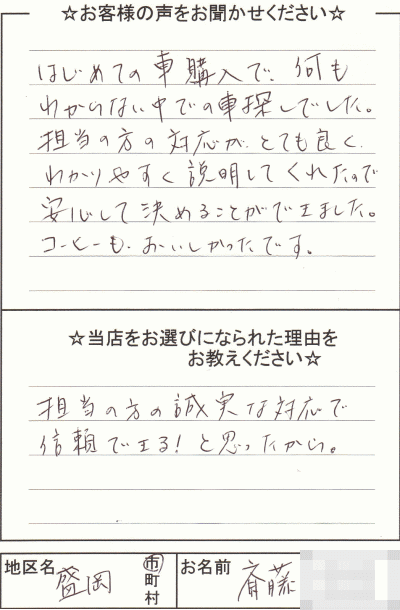 ☆お客様の声をお聞かせください☆
はじめての車購入で、何も
わからない中での車探しでした。
担当の方の対応が、とても良く、
わかりやすく説明してくれたので
安心して決めることができました。
コーヒーも、おいしかったです。
☆当店をお選びになられた理由を
お教えください☆
担当の方の誠実な対応で
信頼できる！と思ったから。
地区名 盛岡 市 町 村 お名前 斎藤